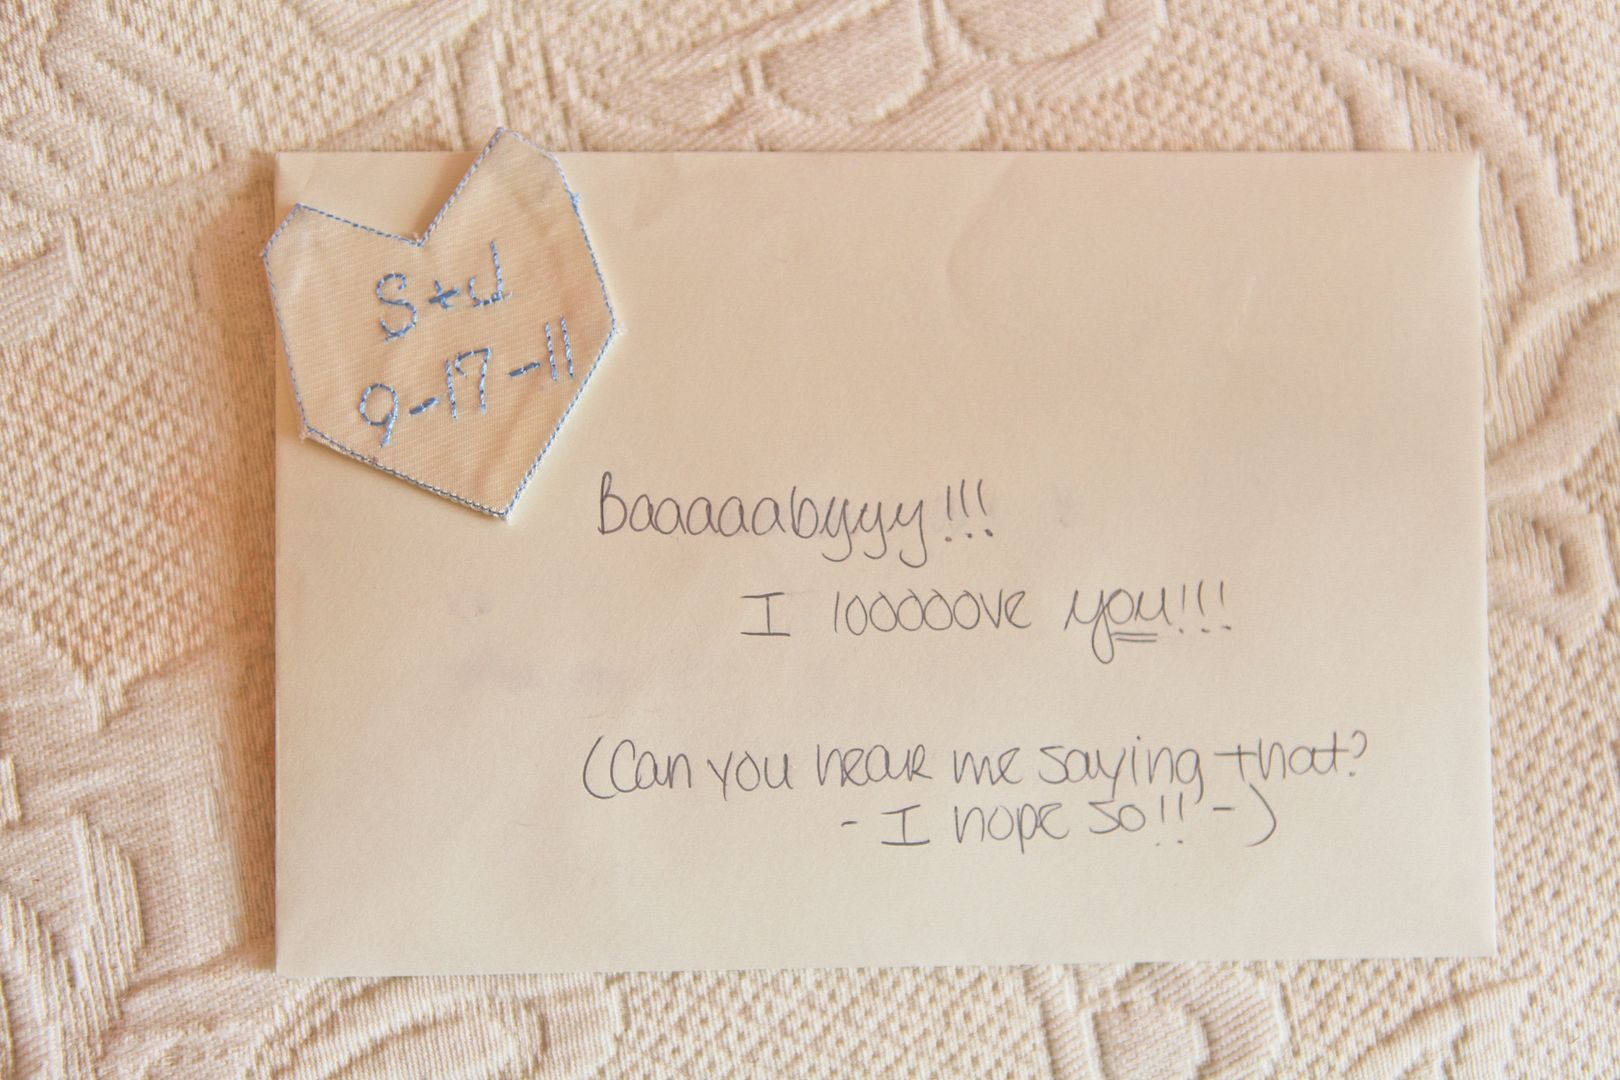 S+J
9-17-11
Baaaaabyyyy!!!
I looooove you!!!
(Can you hear me saying that?
- I hope so!! -)